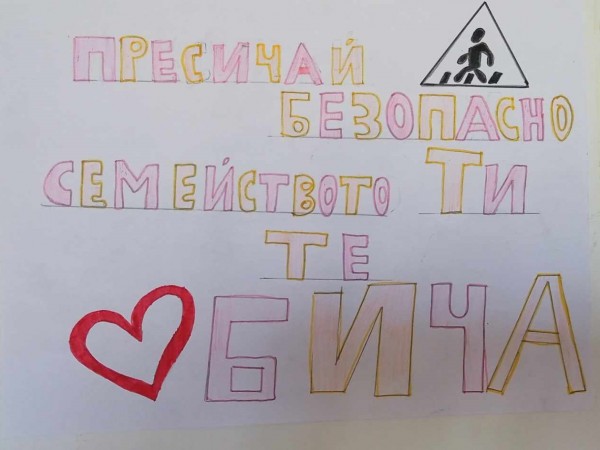 ПРЕСИЧАЙ
БЕЗОПАСНО
СЕМЕЙСТВОТО ТИ
ТЕ
БИЧА